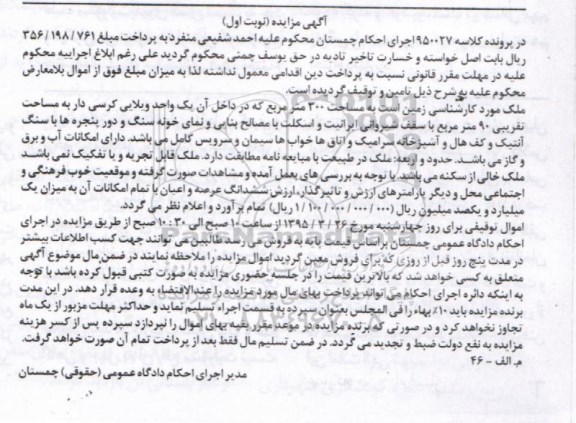 آگهی مزایده (نوبت اول)
در پرونده کلاسه ۹۵۰۰۲۷ اجرای احکام چمستان محکوم علیه احمد شفیعی منفرد به پرداخت مبلغ ۳۵۶/۱۹۸/۷۶۱
ریال بابت اصل خواسته و خسارت تاخیر تادیه در حق یوسف چمنی محکوم گردید علی رغم ابلاغ اجراییه محکوم
علیه در مهلت مقرر قانونی نسبت به پرداخت دین اقدامی معمول نداشته لذا به میزان مبلغ فوق از اموال بلامعارض
محکوم علیه به شرح ذیل تامین و توقیف گردیده است.
ملک مورد کارشناسی زمینی به مساحت ۳۰۰ متر مربع که در داخل آن یک واحد ویلایی کرسی دار به مساحت
تقریبی ۹۰ متر مربع با سقف شیروانی ایرانیت و اسکلت با مصالح بنایی و نمای خونه سنگ و دور پنجره ها با سنگ
آنتیک و کف هال و آشپزخانه سرامیک و اتاق ها خواب ها سیمان و سرویس کامل می باشد. دارای امکانات آب و برق
و گاز می باشد. حدود و اربعه ملک در طبیعت با مبایعه نامه مطابقت دارد. ملک قابل تجزیه و یا تفکیک نمی باشد
ملک خالی از سکنه می باشد. با توجه به بررسی های بعمل آمده و مشاهدات صورت گرفته و موقعیت خوب فرهنگی و
اجتماعی محل و دیگر پارامترهای ارزش و تاثیرگذار، ارزش ششدانگ عرصه و اعیان با تمام امکانات آن به میزان یک
میلیارد و یکصد میلیون ریال (۱/۱۰۰/۰۰۰/۰۰۰ ریال) تمام برآورد و اعلام نظر می گردد.
اموال توقیفی برای روز چهارشنبه مورخ ۱۳۹۵/۳/۲۶ از ساعت ۱۰ صبح الی ۱۰:۳۰ صبح از طریق مزایده در اجرای
احکام دادگاه عمومی چمستان برابر قیمت پایه به فروش می رسد طالبین می توانند جهت کسب اطلاعات بیشتر
در مدت پنج روز قبل از روزی که برای فروش معین گردید اموال مزایده را ملاحظه نمایند در ضمن مال موضوع آگهی
متعلق به کسی خواهد شد که بالاترین قیمت را در جلسه حضوری مزایده به صورت کتبی قبول کرده باشد با توجه
به اینکه دائره اجرای احکام می تواند پرداخت بهای مال مورد مزایده را عندالاقتضاء به وعده قرار دهد. در این مدت
برنده مزایده باید ۱۰٪ بهاء را فی المجلس بعنوان سپرده به قسمت اجراء تسلیم نماید و حداکثر مهلت مزبور از یک ماه
تجاوز نخواهد کرد و در صورتی که برنده مزایده در موعد مقرر بقیه بهای اموال را نپردازد سپرده پس از کسر هزینه
مزایده به نفع دولت ضبط و تجدید می گردد. در ضمن تسلیم مال فقط بعد از پرداخت تمام آن صورت خواهد گرفت.
م. الف - ۴۶
مدیر اجرای احکام دادگاه عمومی (حقوقی) چمستان